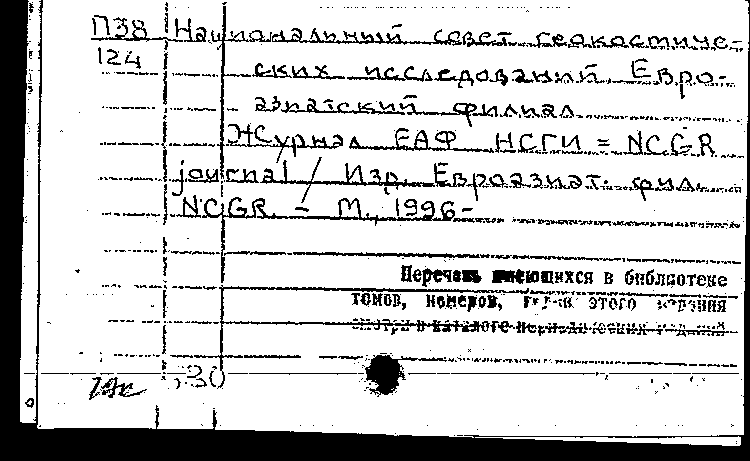 П38 Национальный совет геокостиче-
124 ских исследований. Евро-
азиатский филиал
Журнал ЕАФ НСГИ = NCGR
journal / Изд. Евроазиат. фил.
NCGR. – М., 1996-
Перечень имеющихся в библиотеке
томов, номеров, этого издания
смотри в каталоге периодических изданий
30